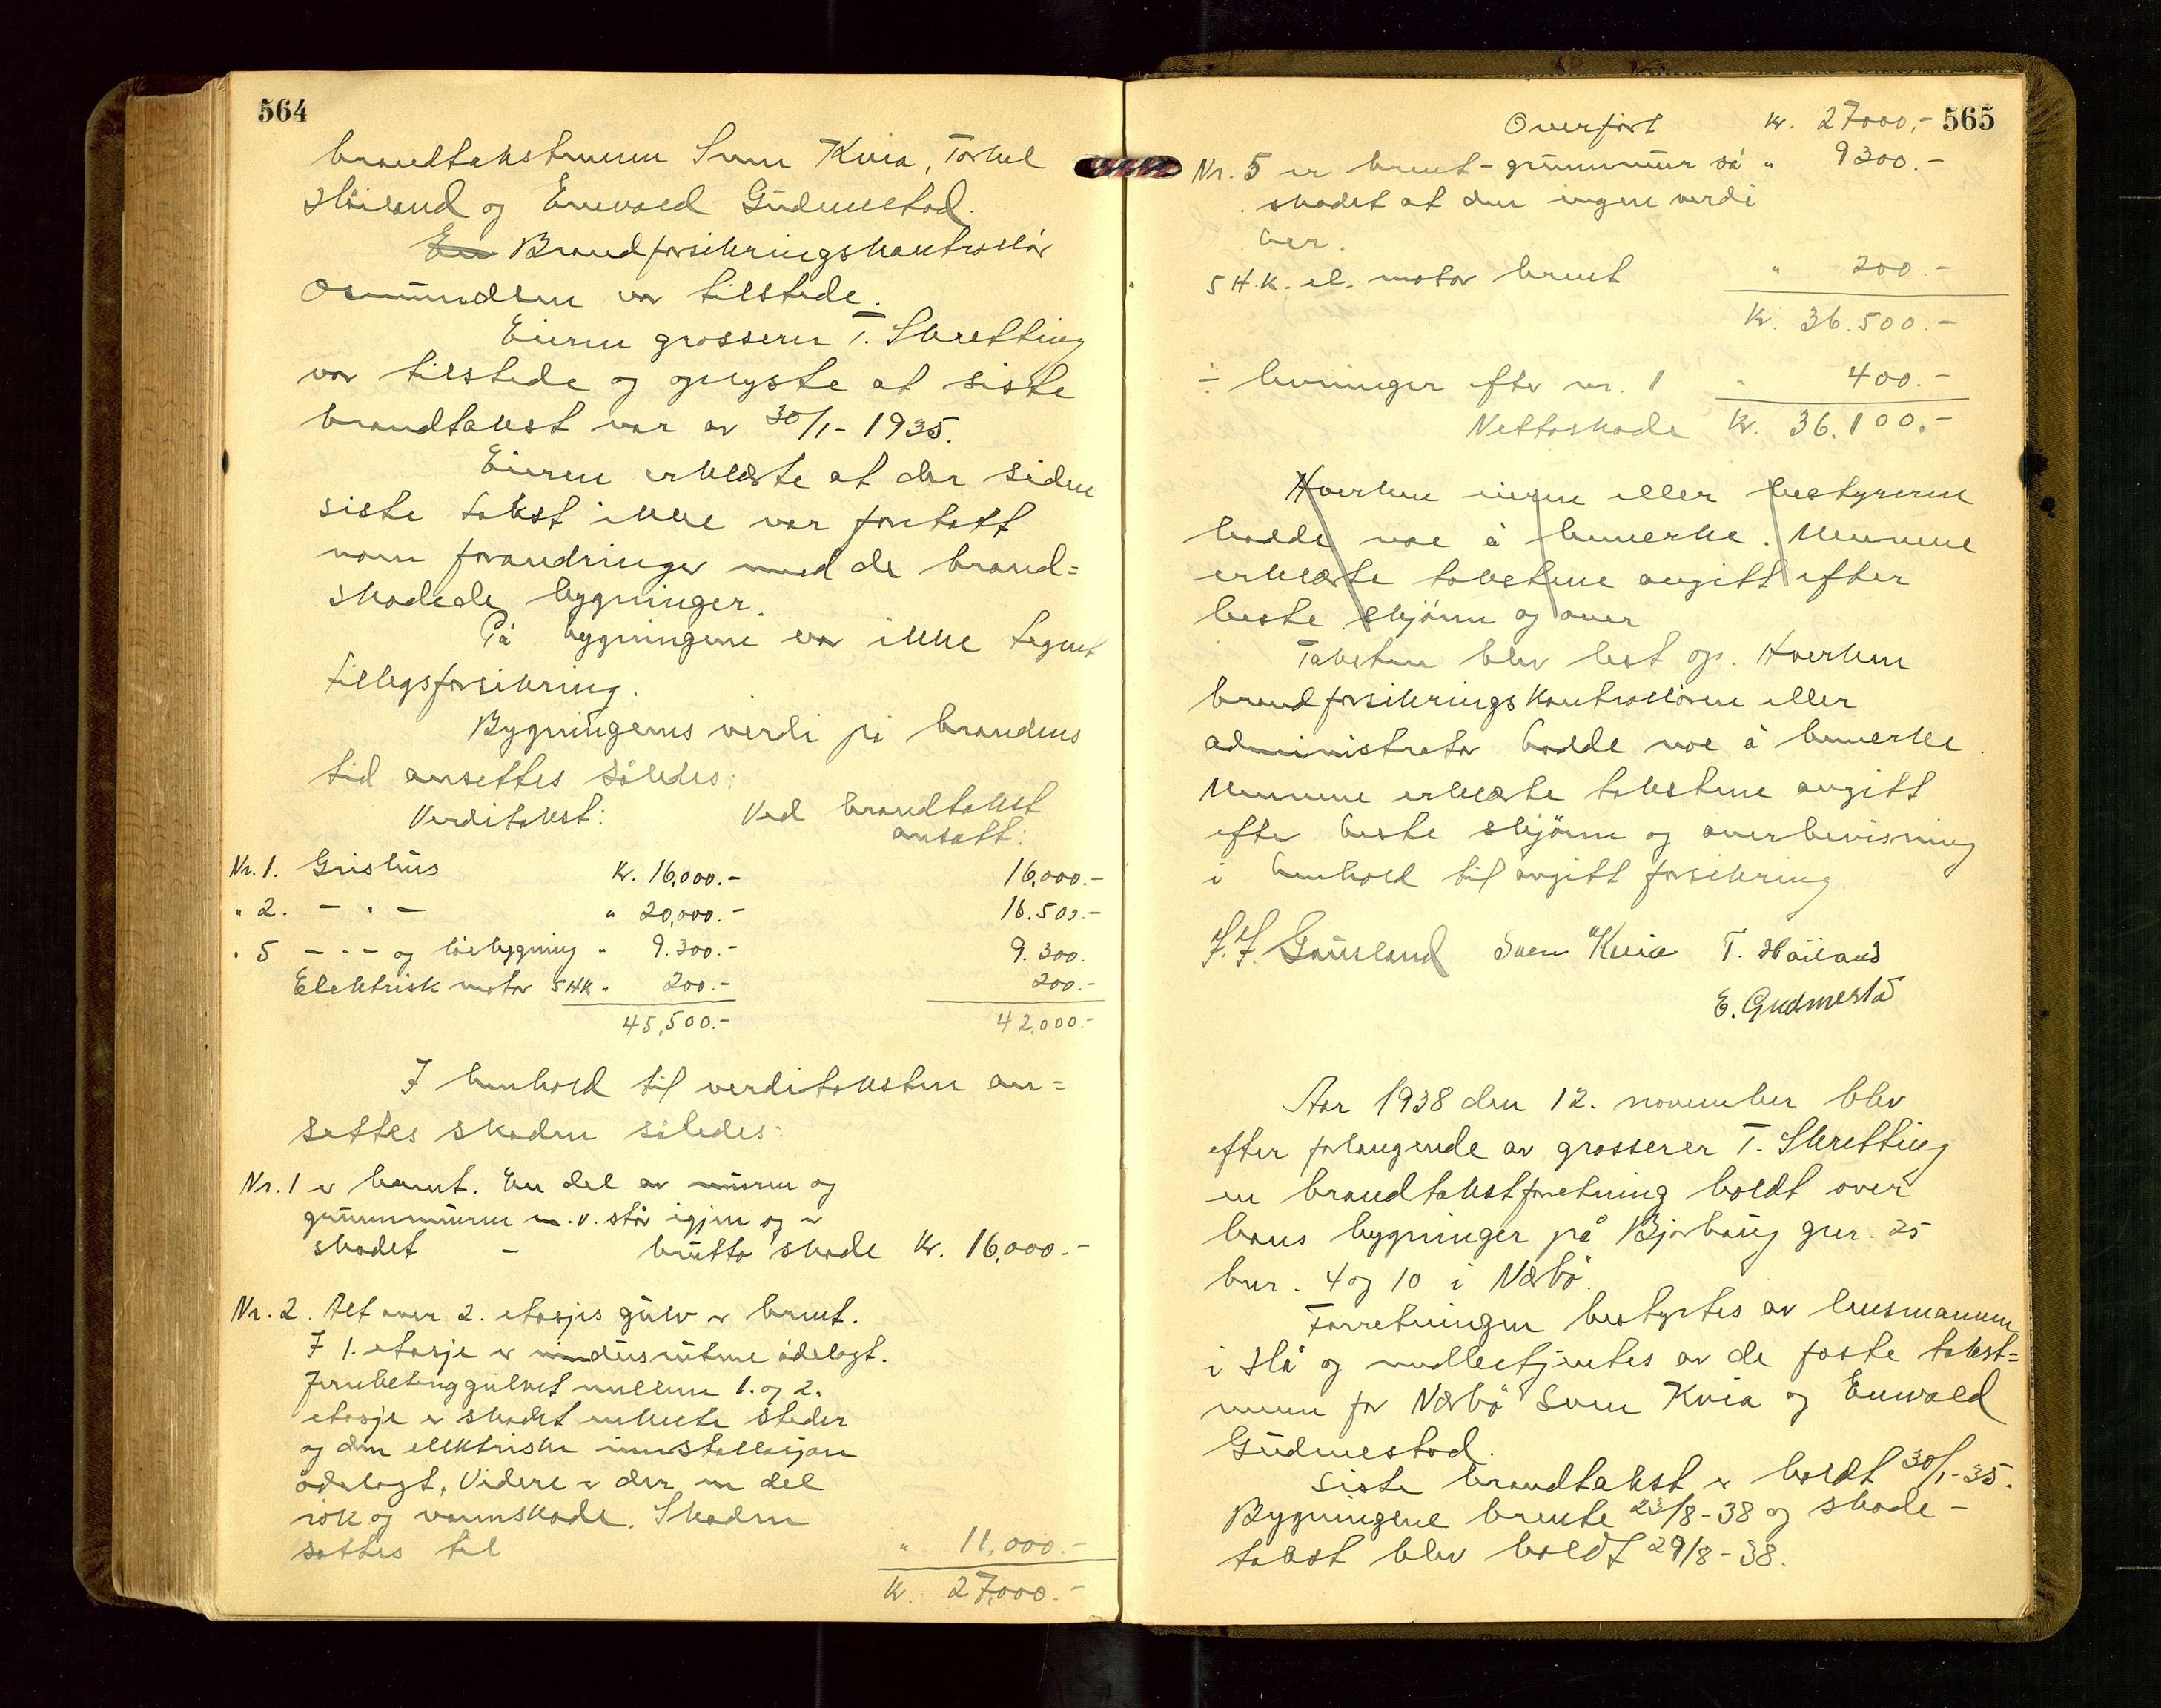 564
brandtakstmenn Sven Kvia, Torkel
Höiland og Enevald Gudmestad.
En Brandforsikringskontrollör
Osmundsen var tilstede.
Eieren grosserer T. Skretting
var tilstede og oplyste at siste
brandtakst var av 30/1-1935.
Eieren erklærte at der siden
siste takst ikke var foretatt
noen forandringer med de brand=
skadede bygninger.
På bygningene var ikke tegnet
tilleggsforsikring.
Bygningenes verdi på brandens
tid ansettes således:
Verditakst: Ved brandtakst
ansatt:
Nr. 1. Grishus Kr. 16,000.- 16,000.-
" 2. - " - " 20,000.- 16.500.-
" 5 - " - og löebygning " 9.300.- 9.300.
Elektrisk motor 5 HK " 200.- 200.-
45,500.- 42.000.-
I henhold til verditaksten an=
settes skaden således:
Nr. 1 er brent. En del av muren og
grunnmuren m.v. står igjen og er
skadet - brutto skade Kr. 16,000.-
Nr. 2. Alt over 2. etasjes gulv er brent.
I 1. etasje er vindusrutene ödelagt.
Jernbetonggulvet mellem 1. og 2.
etasje er skadet enkelte steder
og den elektriske innstallasjon
ödelagt. Videre er der en del
rök og vannskade. Skaden
settes til " 11,000.-
Kr. 27,000.-
565
Overfört kr. 27000,-
Nr. 5 er brent - grunnmur så " 9300.-
skadet at den ingen verdi
har.
5 H.K. el. motor brent " 200.-
Kr. 36.500.-
÷ levninger efter nr. 1 " 400.-
Nettoskade Kr. 36.100.-
Hverken eieren eller bestyreren
hadde noe å bemerke. Mennene
erklærte takstene avgitt efter
beste skjönn og over
Taksten blev lest op. Hverken
brandforsikringskontrollören eller
administrator hadde noe å bemerke.
Mennene erklærte takstene avgitt
efter beste skjönn og overbevisning
i henhold til avgitt forsikring.
J. J. Gausland Sven Kvia T. Höiland
E. Gudmestad
Aar 1938 den 12. november blev
efter forlangende av grosserer T. Skretting
en brandtakstforretning holdt over
hans bygninger på Bjorhaug gnr. 25
bnr. 4 og 10 i Nærbö.
Forretningen bestyrtes av lensmannen
i Hå og medbetjentes av de faste takst=
menn for Nærbö Sven Kvia og Enevald
Gudmestad.
Siste brandtakst er holdt 30/1-35.
Bygningene brente 23/8-38 og skade-
takst blev holdt 29/8-38.